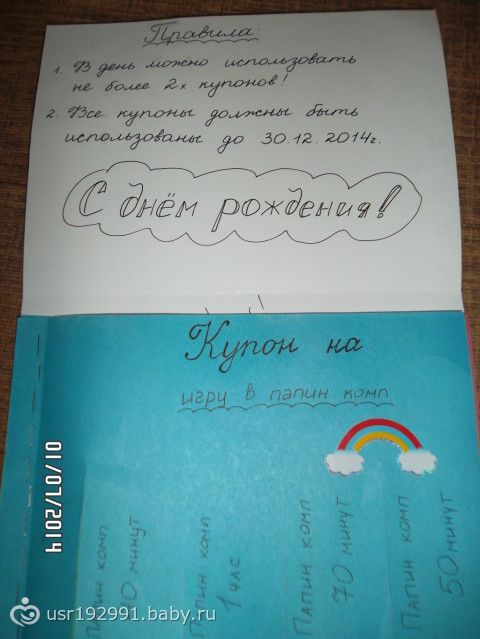 Правила:
1. В день можно использовать
не более 2х купонов!
2. Все купоны должны быть
использованы до 30.12.2014г.
С днём рождения!
Купон на
игру в папин комп
Папин комп
0 минут
Папин комп
1 час
Папин комп
70 минут
Папин комп
50 минут
01/07/2014
usr192991.baby.ru